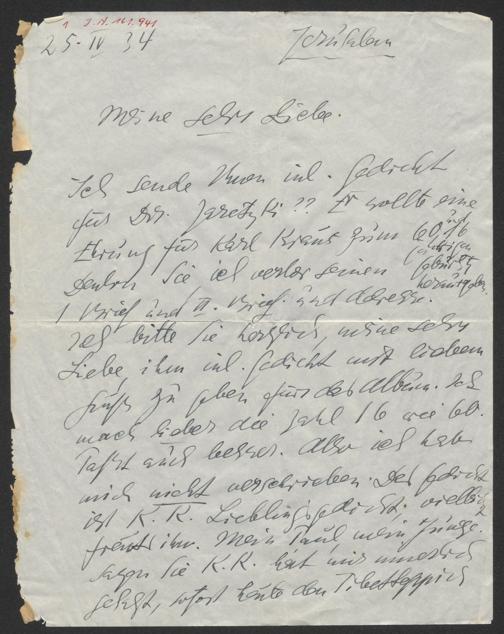 1 J.N. 161.941
25. IV 34 Jerusalem
Meine sehr Liebe.
Ich sende Ihnen inl. Gedicht
für Dr. Jaretzki?? Er wollte eine
Ehrung für Karl Kraus zum 60, 16
Denken Sie ich verlor seinen
herausgeben.
I Brief und II. Brief. und Adresse.
Ich bitte Sie herzlich, meine sehr
Liebe ihm inl. Gedicht mit liebem
Gruß zu geben fürs das Album. Ich
mach lieber die Zahl 16 wie 60.
Paßt auch besser. Also ich hab
mich nicht verschrieben. Das Gedicht
ist K. K. Lieblingsgedicht. vielleicht
freuts ihn. Mein Paul, mein Junge.
Sagen Sie K.K. hat mir
gesagt, sofort heute den Tibetteppich